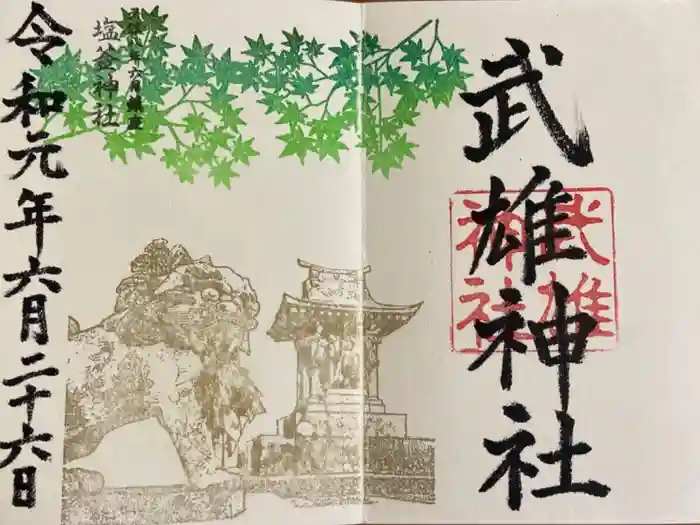 武雄神社
武雄
神社
塩釜神社
令和元年六月二十六日